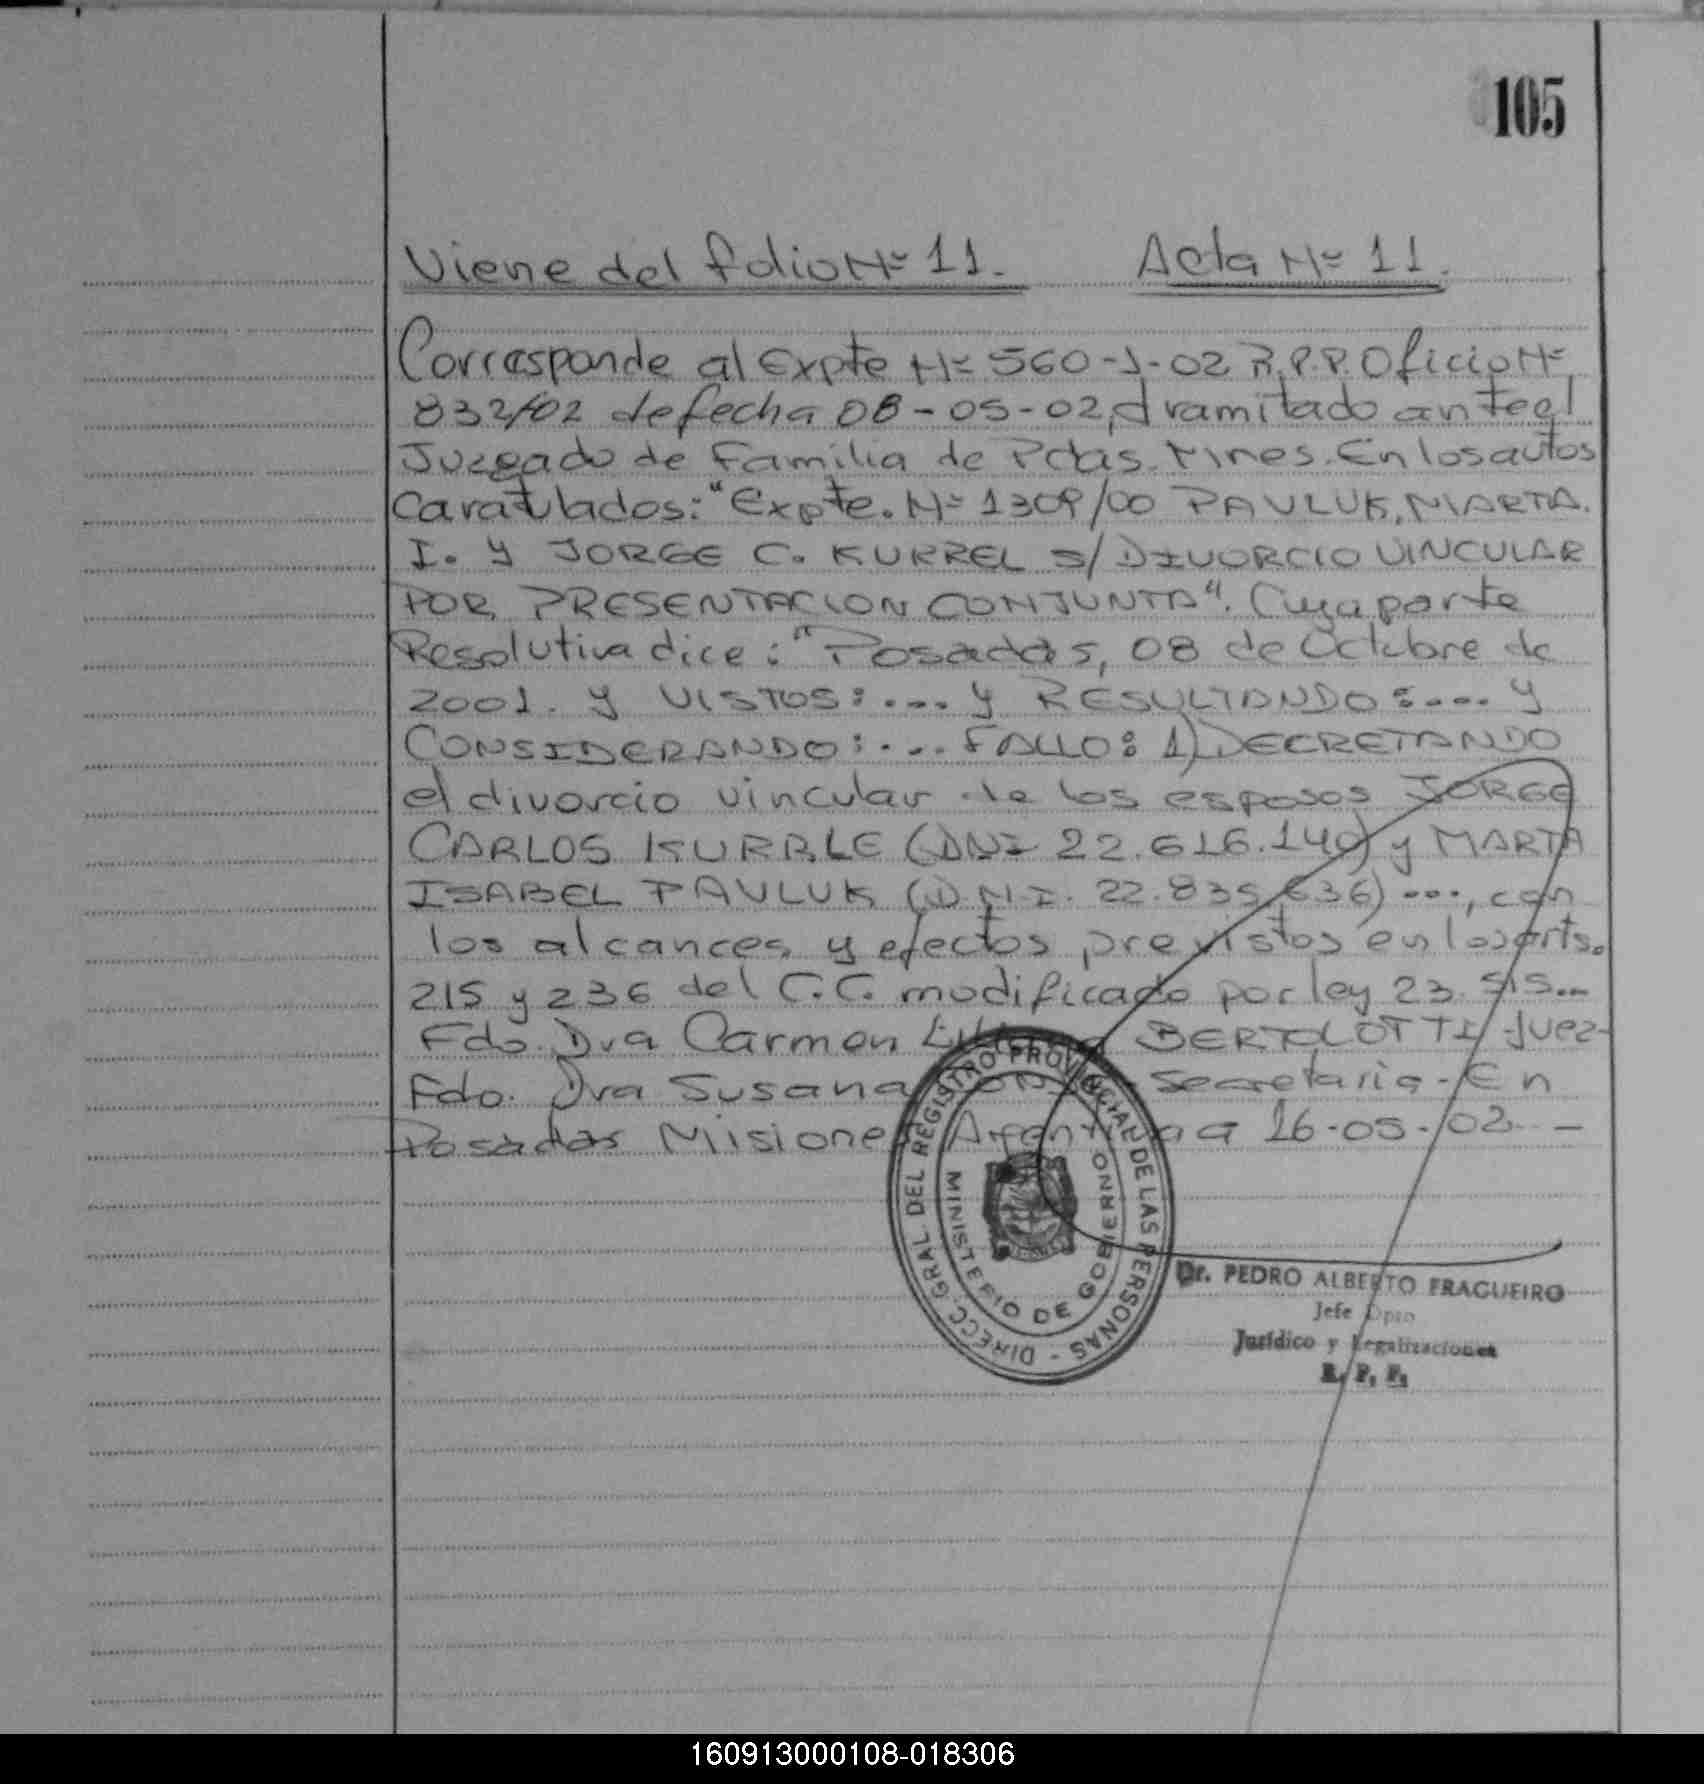 105
Viene del folio Nº 11. Acta Nº 11.
Corresponde al Expte Nº 560-J-02 R.P.P. Oficio Nº
832/02 de fecha 08-05-02, tramitado ante el
Juzgado de Familia de Pdas. Mnes. En los autos
Caratulados: "Expte. Nº 1309/00 PAVLUK, MARTA.
I. Y JORGE C. KURREL S/ DIVORCIO VINCULAR
POR PRESENTACION CONJUNTA". Cuya parte
Resolutiva dice: "Posadas, 08 de Octubre de
2001. Y VISTOS:.... Y RESULTANDO:.... Y
CONSIDERANDO:... FALLO: 1) DECRETANDO
el divorcio vincular de los esposos JORGE
CARLOS KURRLE (DNI 22.616.140) y MARTA
ISABEL PAVLUK (D.N.I. 22.835.636) ..., con
los alcances y efectos previstos en los arts.
215 y 236 del C.C. modificado por ley 23.515...
Fdo. Dra Carmen BERTOLOTTI Juez-
Fdo. Dra Susana - Secretaria - En
Posadas Misiones Argentina a 16-05-02 -
DIRECC. GRAL DEL REGISTRO PROVINCIAL DE LAS PERSONAS -
MINISTERIO DE GOBIERNO
Dr. PEDRO ALBERTO FRAGUEIRO
Jefe Dpto
Jurídico y Legalizaciones
R. P. P.
160913000108-018306